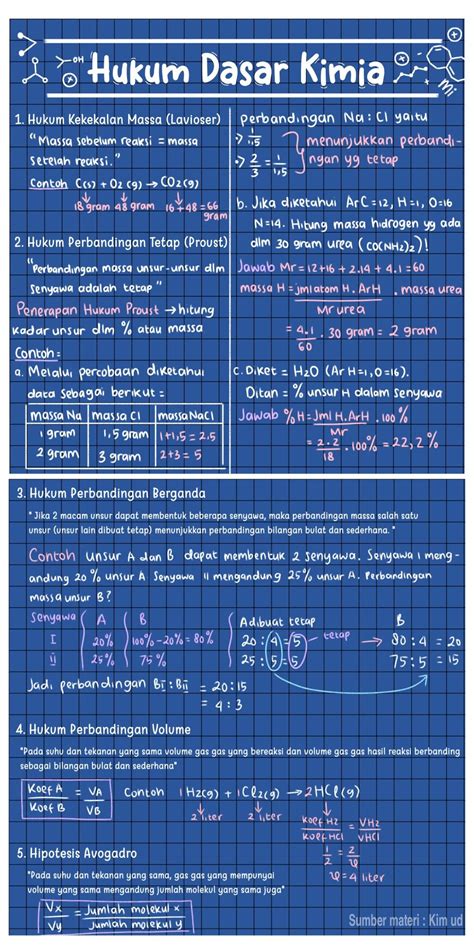 OH
Hukum Dasar Kimia
1. Hukum Kekekalan Massa (Lavioser)
"Massa sebelum reaksi = massa
setelah reaksi."
Contoh C(s) + O2 (g) → CO2(g)
18 gram 48 gram 16+48=66
gram
2. Hukum Perbandingan Tetap (Proust)
"Perbandingan massa unsur-unsur dlm
senyawa adalah tetap"
Penerapan Hukum Proust → hitung
kadar unsur dlm % atau massa
Contoh =
a. Melalui percobaan diketahui
data sebagai berikut =
massa Na | massa Cl | massa NaCl
1 gram | 1,5 gram | 1+1,5 = 2.5
2 gram | 3 gram | 2+3 = 5
perbandingan Na : Cl yaitu
1/1,5
2/3 = 1/1,5
menunjukkan perbandi-
ngan yg tetap
b. Jika diketahui Ar C=12, H=1, O=16
N=14. Hitung massa hidrogen yg ada
dlm 30 gram urea (CO(NH2)2)!
Jawab Mr = 12+16 + 2.14 + 4.1 = 60
massa H = jml atom H. ArH / Mr urea . massa urea
= 4.1/60 . 30 gram = 2 gram
c. Diket = H2O (Ar H=1, O=16).
Ditan = % unsur H dalam senyawa
Jawab %H = Jml H. ArH / Mr . 100%
= 2.2/18 . 100% = 22,2%
3. Hukum Perbandingan Berganda
" Jika 2 macam unsur dapat membentuk beberapa senyawa, maka perbandingan massa salah satu
unsur (unsur lain dibuat tetap) menunjukkan perbandingan bilangan bulat dan sederhana. "
Contoh unsur A dan B dapat membentuk 2 senyawa. Senyawa I meng-
andung 20% unsur A Senyawa II mengandung 25% unsur A. Perbandingan
massa unsur B?
Senyawa | A | B
I | 20% | 100%-20% = 80%
II | 25% | 75%
Adibuat tetap
20 : 4 = 5 tetap
25 : 5 = 5
B
80 : 4 = 20
75 : 5 = 15
Jadi perbandingan BI : BII = 20:15
= 4 : 3
4. Hukum Perbandingan Volume
"Pada suhu dan tekanan yang sama volume gas gas yang bereaksi dan volume gas gas hasil reaksi berbanding
sebagai bilangan bulat dan sederhana"
Koef A / Koef B = VA / VB
Contoh 1 H2(g) + 1 Cl2(g) → 2 HCl(g)
2 liter 2 liter
Koef H2 / Koef HCl = VH2 / VHCl
1/2 = 2/v
v = 4 liter
5. Hipotesis Avogadro
"Pada suhu dan tekanan yang sama, gas gas yang mempunyai
volume yang sama mengandung jumlah molekul yang sama juga"
Vx / Vy = Jumlah molekul x / Jumlah molekul y
Sumber materi : Kim ud